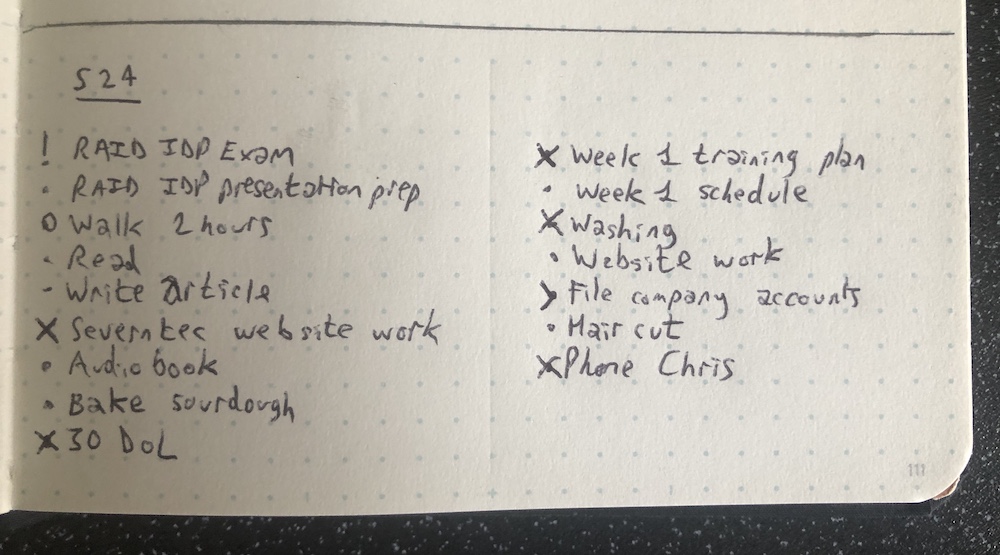 S 24
! RAID IDP Exam
• RAID IDP presentation prep
O Walk 2 hours
• Read
- Write article
X Severntec website work
• Audio book
• Bake sourdough
X 30 DoL
X Week 1 training plan
• Week 1 schedule
X Washing
• Website work
> File company accounts
• Hair cut
X Phone Chris
111